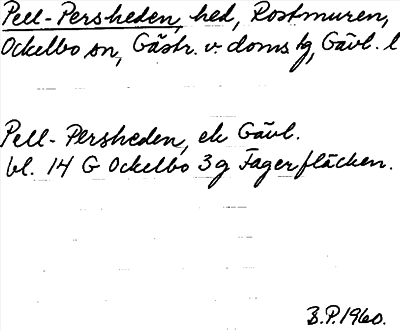 Pell-Persheden, hed, Rostmuren,
Ockelbo sn, Gästr. v. doms tg, Gävl. l
Pell-Persheden, ek Gävl.
bl. 14 G Ockelbo 3 g Fagerfläcken.
B.P. 1960.